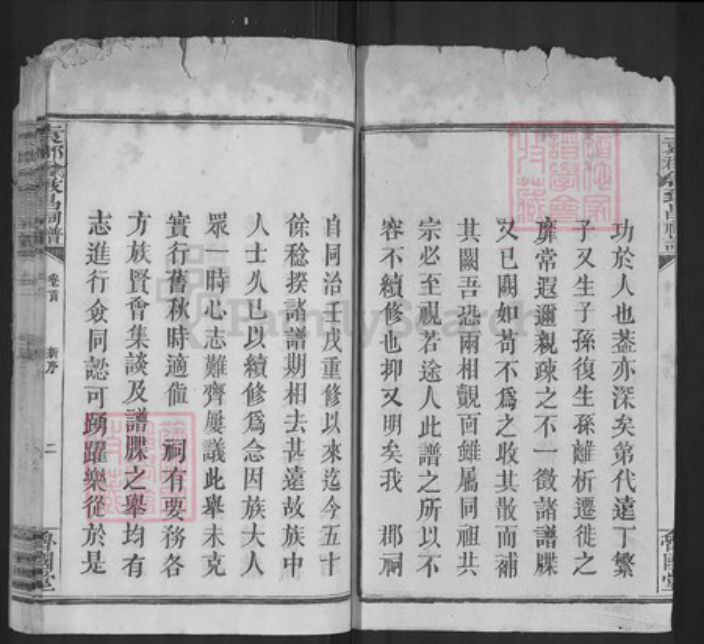 功於人也葢亦深矣第代遠丁繁
子又生子孫復生孫離析遷徙之
靡常遐邇親疎之不一徵諸譜牒
又已闕如苟不爲之收其散而補
其闕吾恐兩相覿面雖屬同祖共
宗必至視若途人此譜之所以不
容不續修也抑又明矣我 郡祠
自同治壬戌重修以來迄今五十
餘稔揆諸譜期相去甚遠故族中
人士久已以續修爲念因族大人
眾一時心志難齊屢議此舉未克
實行舊秋時適值 祠有要務各
方族賢會集談及譜牒之舉均有
志進行僉同認可踴躍樂從於是
祠譜
卷首 新序 二
魯國堂
魯國堂
FamilySearch